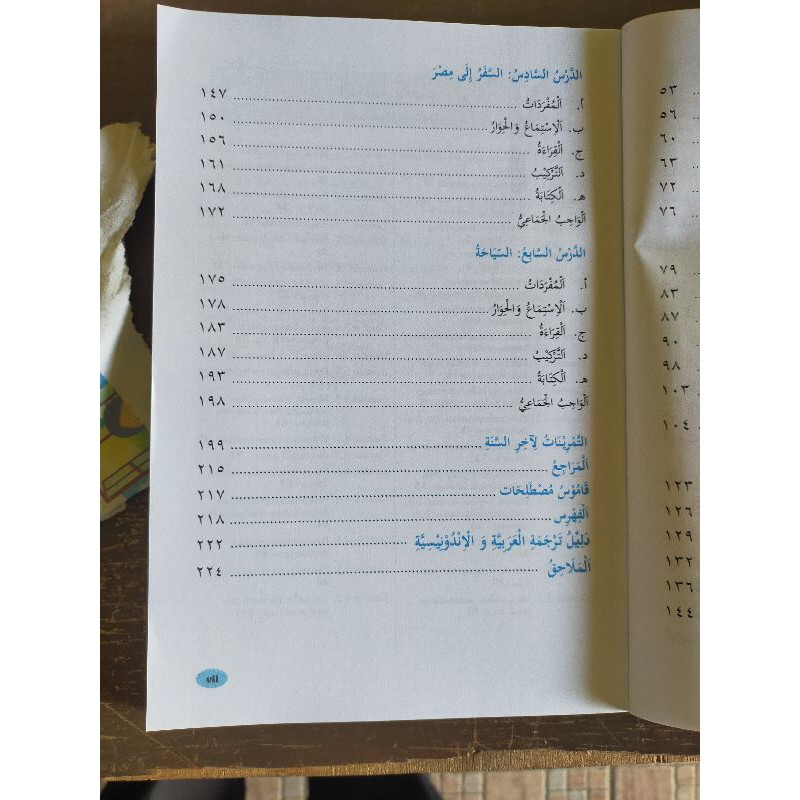 الدَّرْسُ السَّادِسُ: السَّفَرُ إِلَى مِصْرَ
أ. اَلْمُفْرَدَاتُ ........ ١٤٧
ب. اَلْاِسْتِمَاعُ وَالْحِوَارُ ........ ١٥٠
ج. اَلْقِرَاءَةُ ........ ١٥٦
د. اَلتَّرْكِيْبُ ........ ١٦١
هـ. اَلْكِتَابَةُ ........ ١٦٨
اَلْوَاجِبُ الْجَمَاعِيُّ ........ ١٧٢
الدَّرْسُ السَّابِعُ: السِّيَاحَةُ
أ. اَلْمُفْرَدَاتُ ........ ١٧٥
ب. اَلْاِسْتِمَاعُ وَالْحِوَارُ ........ ١٧٨
ج. اَلْقِرَاءَةُ ........ ١٨٣
د. اَلتَّرْكِيْبُ ........ ١٨٧
هـ. اَلْكِتَابَةُ ........ ١٩٣
اَلْوَاجِبُ الْجَمَاعِيُّ ........ ١٩٨
التَّمْرِيْنَاتُ لِآخِرِ السَّنَةِ ........ ١٩٩
اَلْمَرَاجِعُ ........ ٢١٥
قَامُوْسُ مُصْطَلِحَات ........ ٢١٧
اَلْفِهْرِس ........ ٢١٨
دَلِيْلُ تَرْجَمَةِ الْعَرَبِيَّةِ وَ الْاِنْدُوْنِيْسِيَّةِ ........ ٢٢٢
اَلْمَلَاحِقُ ........ ٢٢٤
vii
٥٣
٥٦
٦٠
٦٣
٧٢
٧٦
٧٩
٨٣
٨٧
٩٠
٩٨
١٠٣
١٠٤
١٢٣
١٢٦
١٢٩
١٣٢
١٣٦
١٤٤